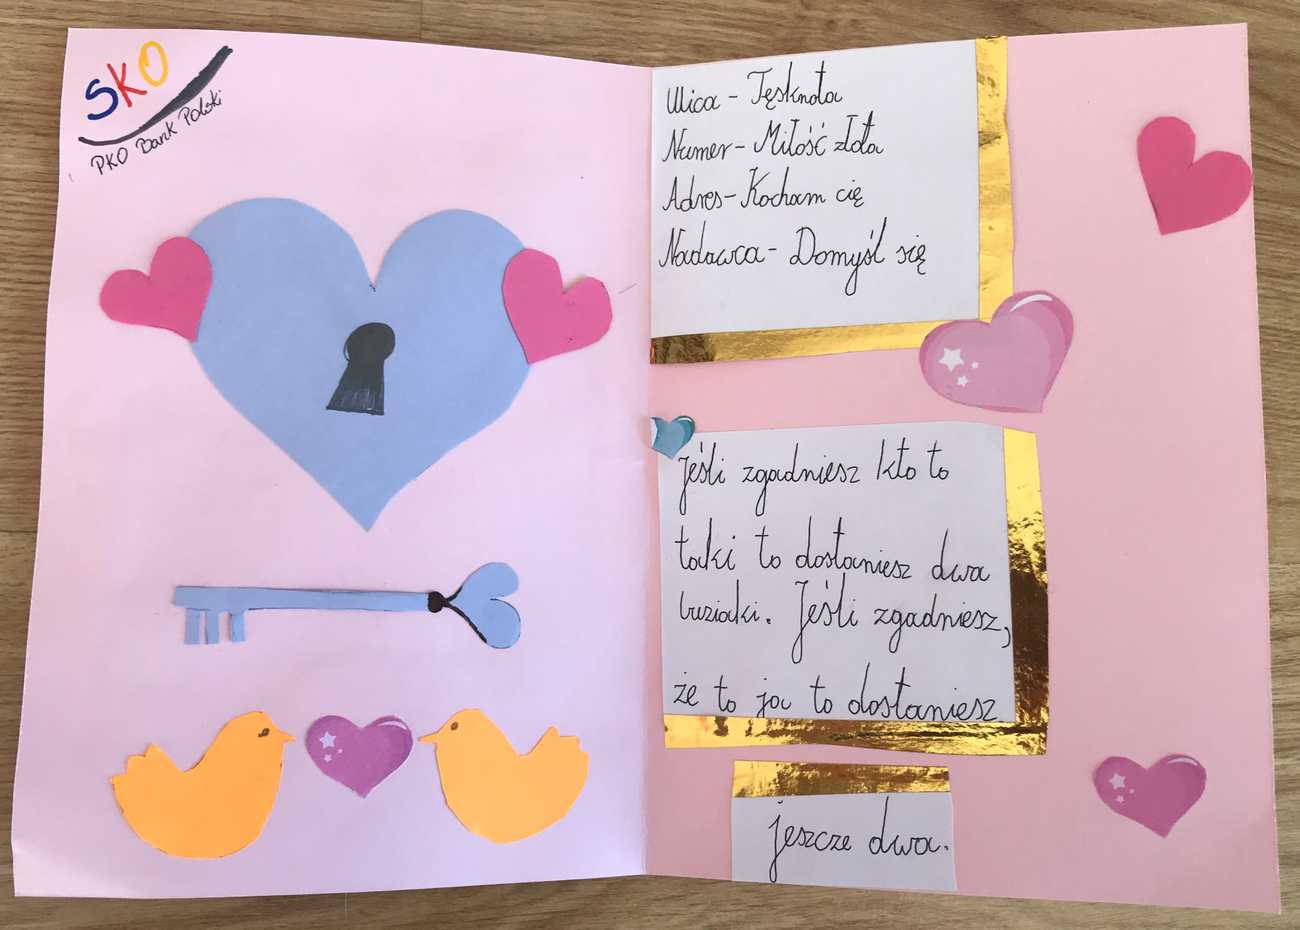 SKO
PKO Bank Polski
Ulica - Tęsknota
Numer - Miłość złota
Adres - Kocham cię
Nadawca - Domyśl się
Jeśli zgadniesz kto to
taki to dostaniesz dwa
buziaki. Jeśli zgadniesz,
że to ja to dostaniesz
jeszcze dwa.